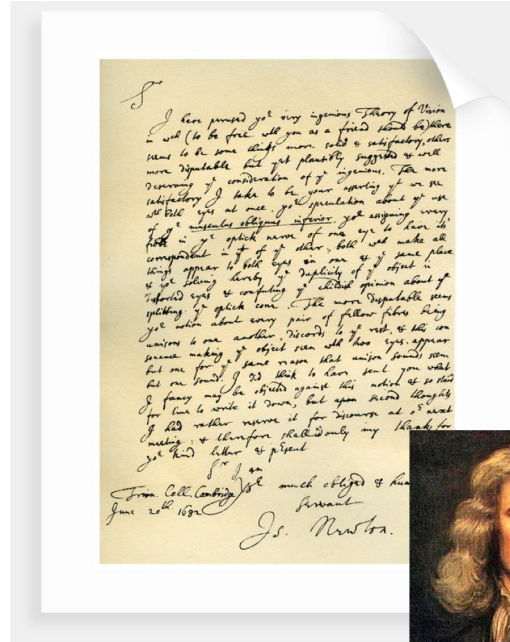 Sr
I have perused yor very ingenious Theory of Vision
in wch (to be free wth you as a friend should be) there
seems to be some things more solid & satisfactory, others
more disputable but yet plausibly suggested & well
deserving ye consideration of ye ingenious. The more
satisfactory I take to be your asserting yt we see
wth both eyes at once, yor speculation about ye use
of ye musculus obliquus inferior, yor assigning every
fibre in ye optick nerve of one eye to have its
correspondent in yt of ye other, both wch make all
things appear to both eyes in one & ye same place
& yor solving hereby ye duplicity of ye object in
distorted eyes & confuting ye childish opinion about ye
splitting ye optick cone. The more disputable seems
yor notion about every pair of fellow fibres being
unisons to one another, discords to ye rest, & this con
sonance making ye object seen wth two eyes appear
but one for ye same reason that unison sounds seem
but one sound. I did think to have sent you what
I fancy may be objected against this notion & so staid
for time to write it down, but upon second thoughts
I had rather reserve it for discourse at or next
meeting: & therefore shall add only my thanks for
yor kind letter & present
Sr I am
Trin. Coll. Cambridge yor much obliged & hum
June 20th. 1682 Servant
Is. Newton.